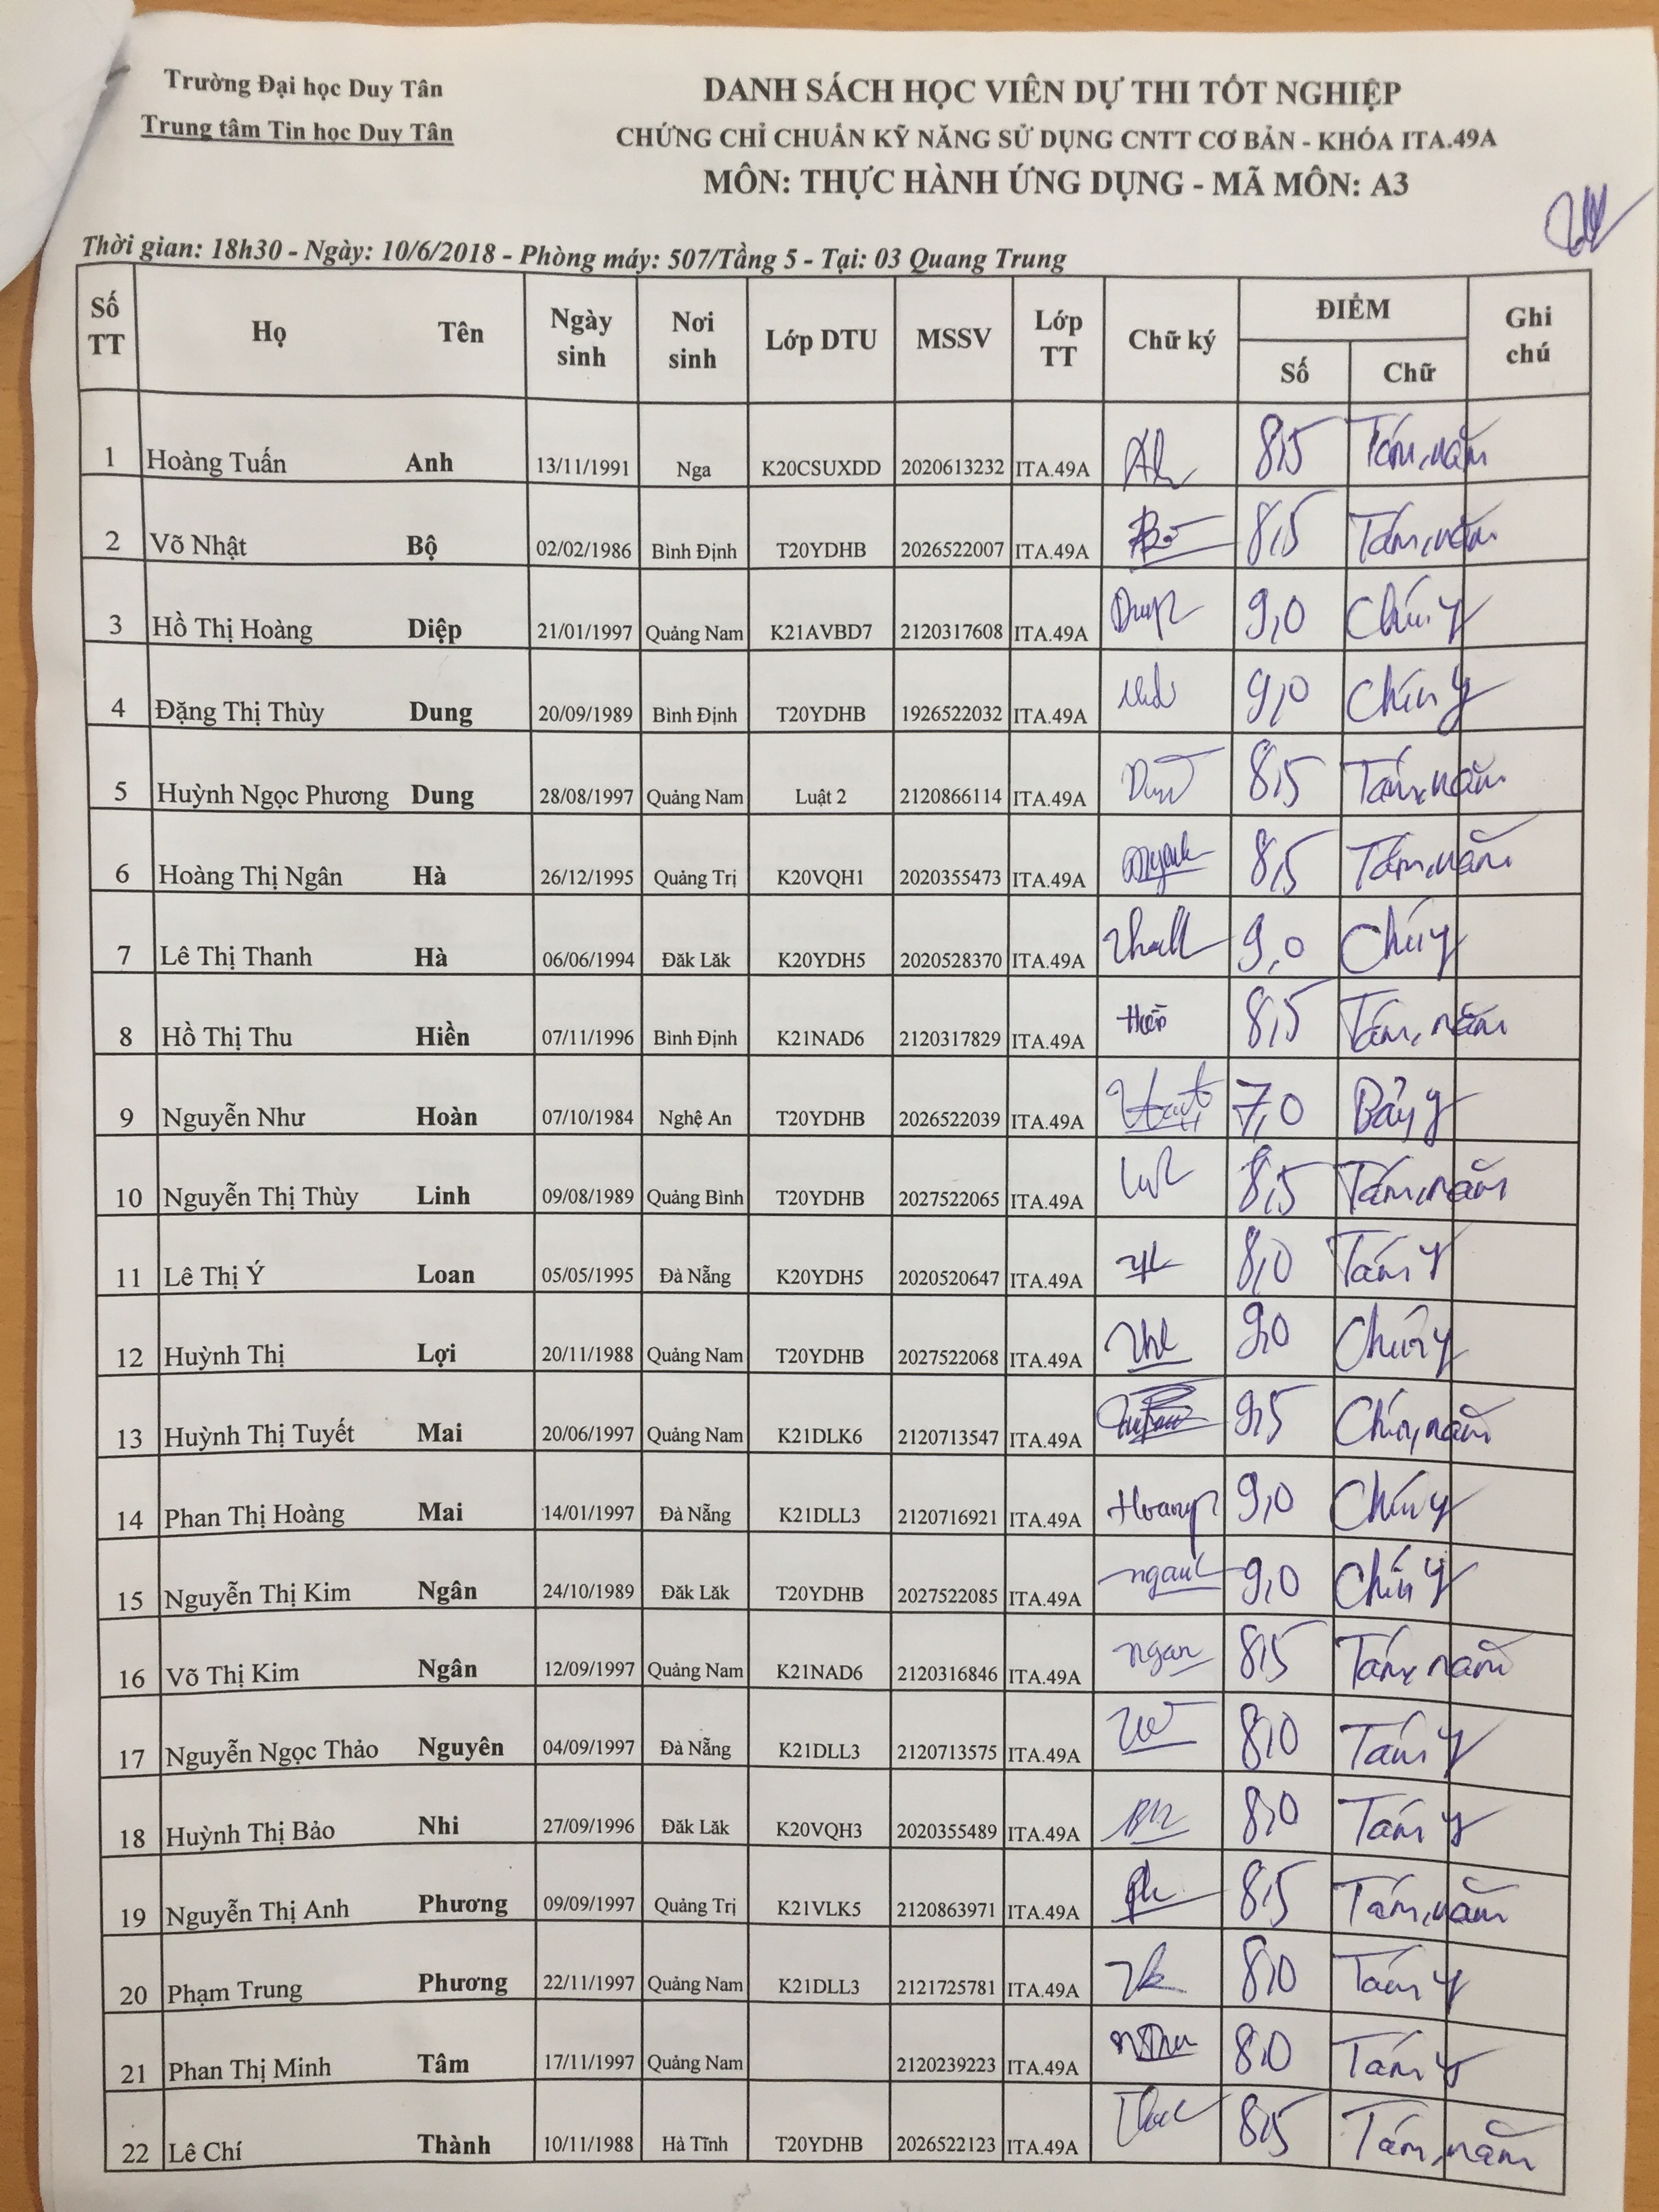 Trường Đại học Duy Tân
Trung tâm Tin học Duy Tân
DANH SÁCH HỌC VIÊN DỰ THI TỐT NGHIỆP
CHỨNG CHỈ CHUẨN KỸ NĂNG SỬ DỤNG CNTT CƠ BẢN - KHÓA ITA.49A
MÔN: THỰC HÀNH ỨNG DỤNG - MÃ MÔN: A3
Thời gian: 18h30 - Ngày: 10/6/2018 - Phòng máy: 507/Tầng 5 - Tại: 03 Quang Trung
Số TT Họ Tên Ngày sinh Nơi sinh Lớp DTU MSSV Lớp TT Chữ ký ĐIỂM Ghi chú
Số Chữ
1 Hoàng Tuấn Anh 13/11/1991 Nga K20CSUXDD 2020613232 ITA.49A 8,5 Tám, năm
2 Võ Nhật Bộ 02/02/1986 Bình Định T20YDHB 2026522007 ITA.49A 8,5 Tám, năm
3 Hồ Thị Hoàng Diệp 21/01/1997 Quảng Nam K21AVBD7 2120317608 ITA.49A 9,0 Chín y
4 Đặng Thị Thùy Dung 20/09/1989 Bình Định T20YDHB 1926522032 ITA.49A 9,0 Chín y
5 Huỳnh Ngọc Phương Dung 28/08/1997 Quảng Nam Luật 2 2120866114 ITA.49A 8,5 Tám, năm
6 Hoàng Thị Ngân Hà 26/12/1995 Quảng Trị K20VQH1 2020355473 ITA.49A 8,5 Tám, năm
7 Lê Thị Thanh Hà 06/06/1994 Đăk Lăk K20YDH5 2020528370 ITA.49A 9,0 Chín y
8 Hồ Thị Thu Hiền 07/11/1996 Bình Định K21NAD6 2120317829 ITA.49A 8,5 Tám, năm
9 Nguyễn Như Hoàn 07/10/1984 Nghệ An T20YDHB 2026522039 ITA.49A 7,0 Bảy y
10 Nguyễn Thị Thùy Linh 09/08/1989 Quảng Bình T20YDHB 2027522065 ITA.49A 8,5 Tám, năm
11 Lê Thị Ý Loan 05/05/1995 Đà Nẵng K20YDH5 2020520647 ITA.49A 8,0 Tám y
12 Huỳnh Thị Lợi 20/11/1988 Quảng Nam T20YDHB 2027522068 ITA.49A 9,0 Chín y
13 Huỳnh Thị Tuyết Mai 20/06/1997 Quảng Nam K21DLK6 2120713547 ITA.49A 9,5 Chín, năm
14 Phan Thị Hoàng Mai 14/01/1997 Đà Nẵng K21DLL3 2120716921 ITA.49A Hoang 9,0 Chín y
15 Nguyễn Thị Kim Ngân 24/10/1989 Đăk Lăk T20YDHB 2027522085 ITA.49A 9,0 Chín y
16 Võ Thị Kim Ngân 12/09/1997 Quảng Nam K21NAD6 2120316846 ITA.49A ngan 8,5 Tám, năm
17 Nguyễn Ngọc Thảo Nguyên 04/09/1997 Đà Nẵng K21DLL3 2120713575 ITA.49A 8,0 Tám y
18 Huỳnh Thị Bảo Nhi 27/09/1996 Đăk Lăk K20VQH3 2020355489 ITA.49A 8,0 Tám y
19 Nguyễn Thị Anh Phương 09/09/1997 Quảng Trị K21VLK5 2120863971 ITA.49A 8,5 Tám, năm
20 Phạm Trung Phương 22/11/1997 Quảng Nam K21DLL3 2121725781 ITA.49A 8,0 Tám y
21 Phan Thị Minh Tâm 17/11/1997 Quảng Nam 2120239223 ITA.49A 8,0 Tám y
22 Lê Chí Thành 10/11/1988 Hà Tĩnh T20YDHB 2026522123 ITA.49A 8,5 Tám, năm